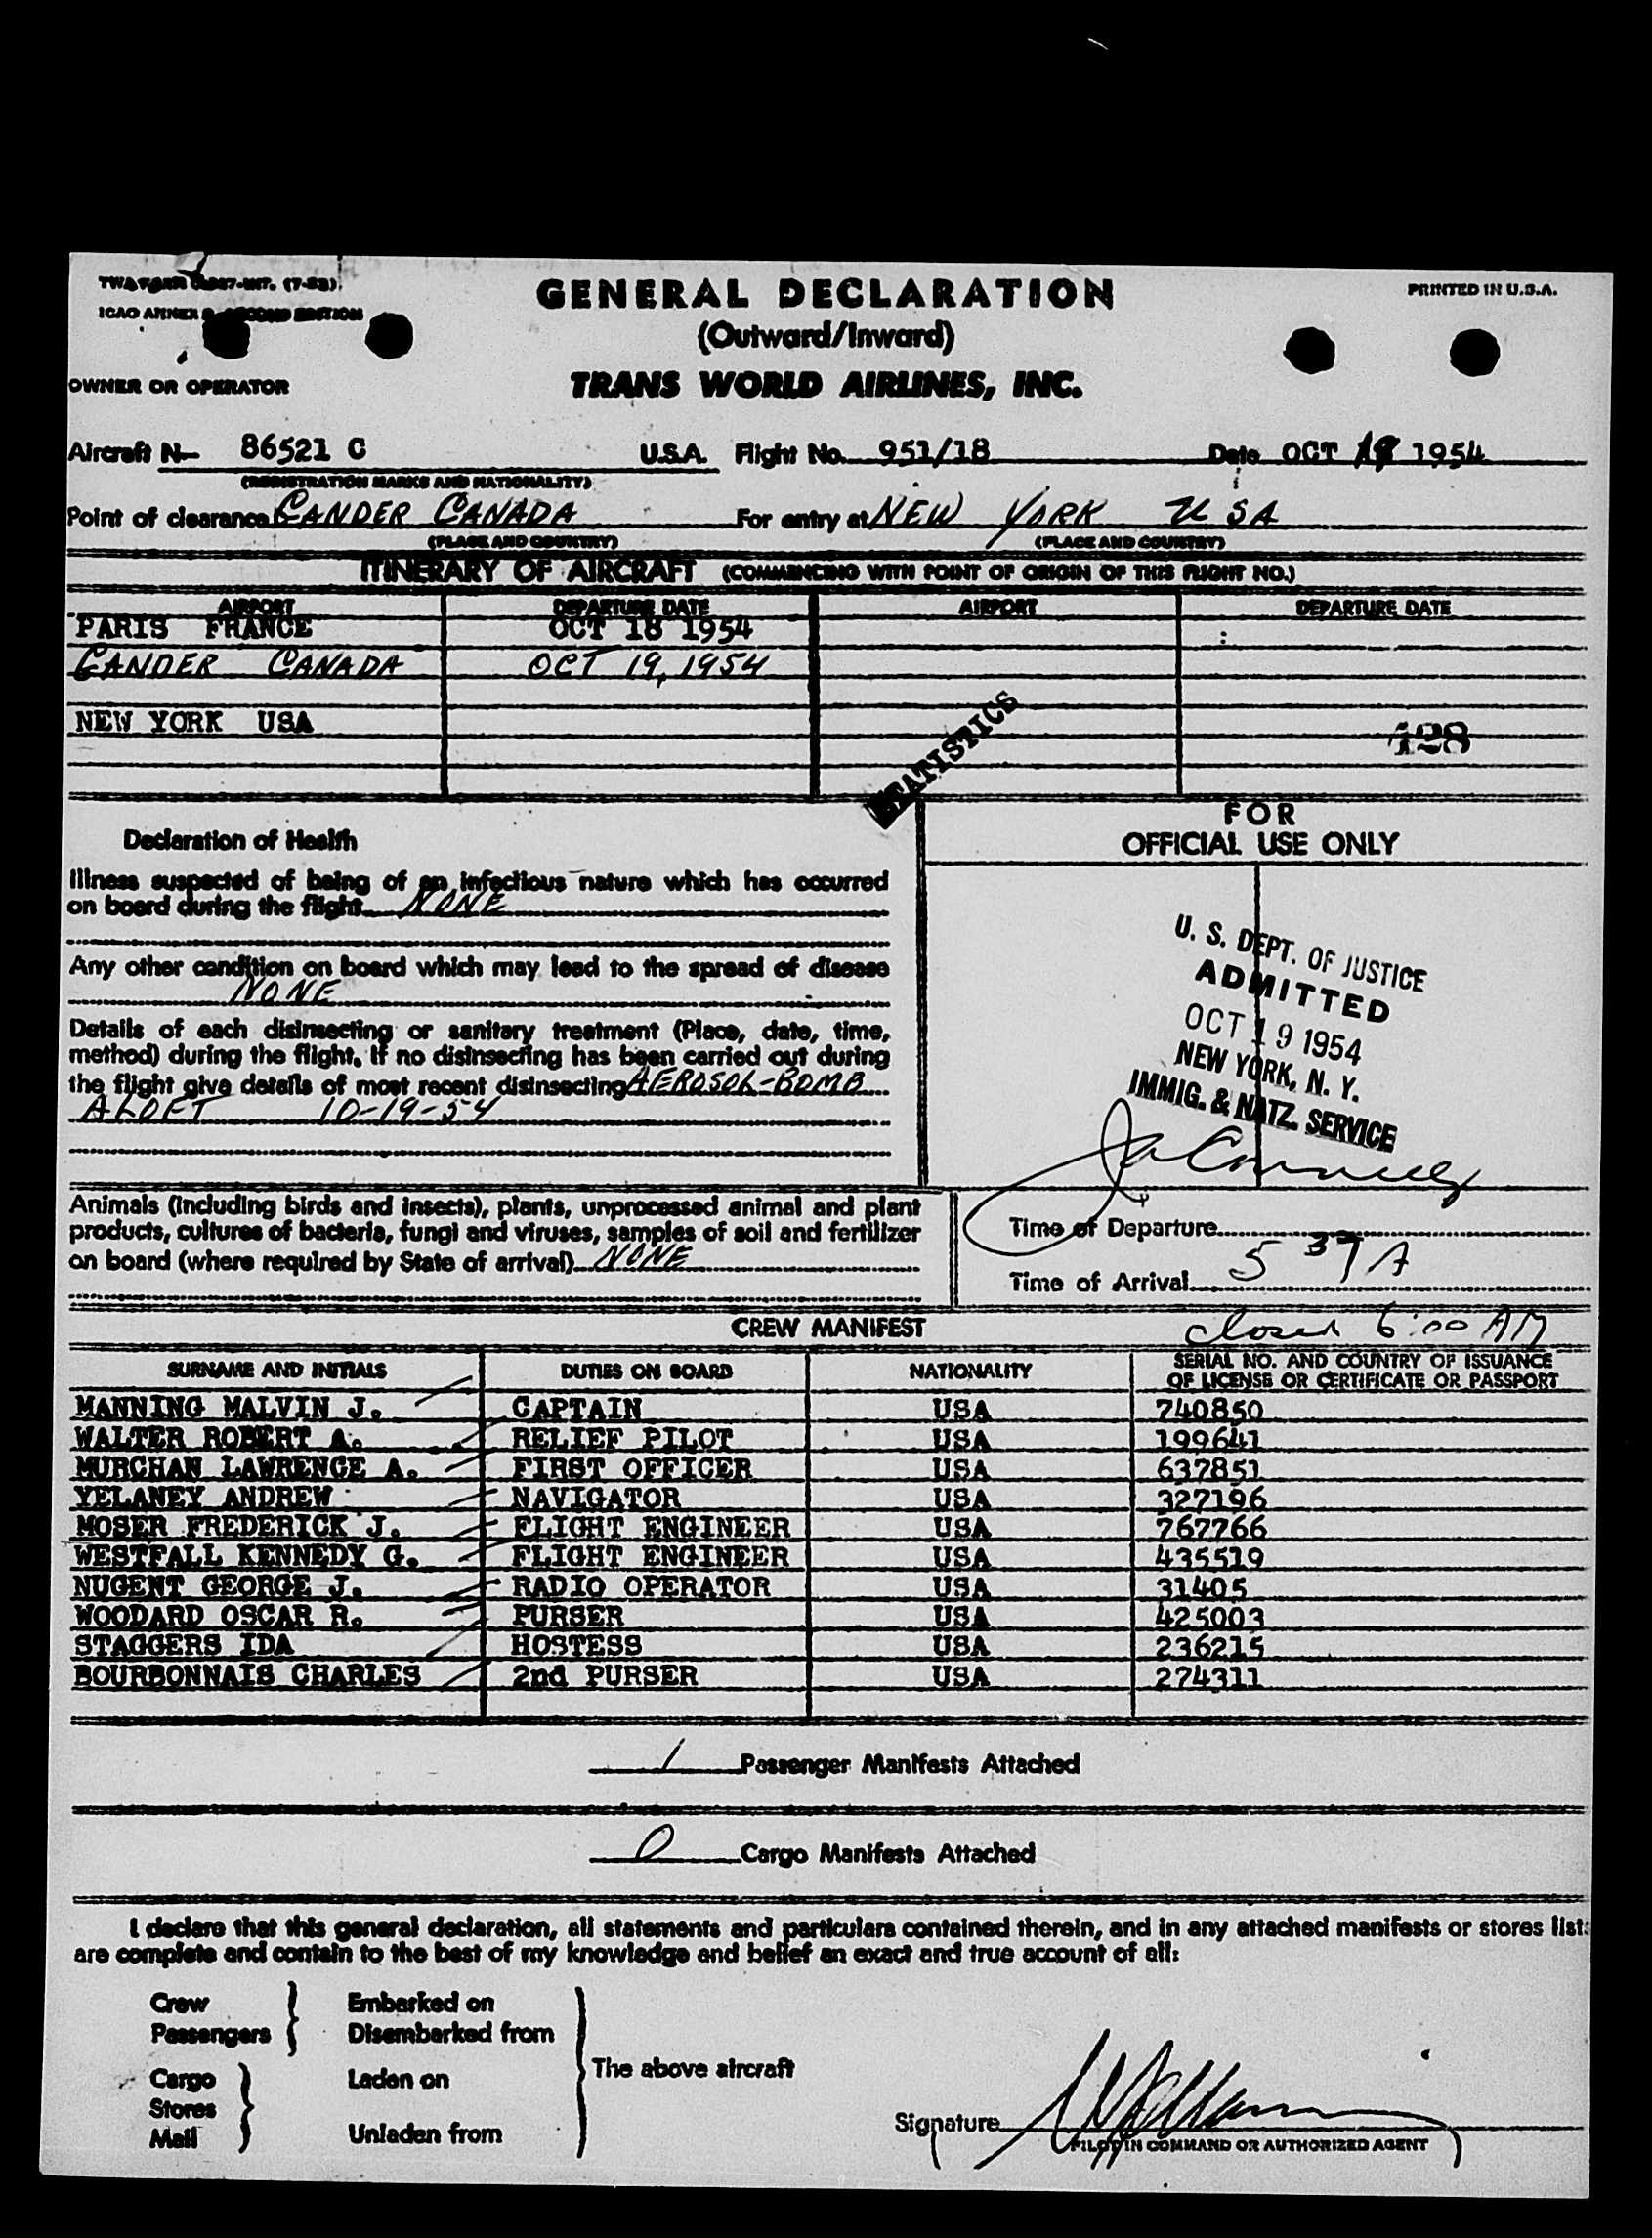 TWA FORM -INT. (7-53)
PRINTED IN U.S.A.
ICAO ANNEX SECOND EDITION
GENERAL DECLARATION
(Outward/Inward)
OWNER OR OPERATOR
TRANS WORLD AIRLINES, INC.
Aircraft N- 86521 C U.S.A. Flight No. 951/18 Date OCT 19 1954
(REGISTRATION MARKS AND NATIONALITY)
Point of clearance GANDER CANADA For entry at NEW YORK USA
(PLACE AND COUNTRY) (PLACE AND COUNTRY)
ITINERARY OF AIRCRAFT (COMMENCING WITH POINT OF ORIGIN OF THIS FLIGHT NO.)
AIRPORT DEPARTURE DATE AIRPORT DEPARTURE DATE
PARIS FRANCE OCT 18 1954
GANDER CANADA OCT 19, 1954
NEW YORK USA
STATISTICS
128
Declaration of Health
Illness suspected of being of an infectious nature which has occurred
on board during the flight NONE
Any other condition on board which may lead to the spread of disease
NONE
Details of each disinsecting or sanitary treatment (Place, date, time,
method) during the flight. If no disinsecting has been carried out during
the flight give details of most recent disinsecting AEROSOL-BOMB
ALOFT 10-19-54
FOR
OFFICIAL USE ONLY
U. S. DEPT. OF JUSTICE
ADMITTED
OCT 19 1954
NEW YORK, N. Y.
IMMIG. & NATZ. SERVICE
Animals (including birds and insects), plants, unprocessed animal and plant
products, cultures of bacteria, fungi and viruses, samples of soil and fertilizer
on board (where required by State of arrival) NONE
Time of Departure
Time of Arrival 5 37 A
closed 6:00 AM
CREW MANIFEST
SURNAME AND INITIALS DUTIES ON BOARD NATIONALITY SERIAL NO. AND COUNTRY OF ISSUANCE
OF LICENSE OR CERTIFICATE OR PASSPORT
MANNING MALVIN J. CAPTAIN USA 740850
WALTER ROBERT A. RELIEF PILOT USA 199641
MURCHAN LAWRENCE A. FIRST OFFICER USA 637851
YELANEY ANDREW NAVIGATOR USA 327196
MOSER FREDERICK J. FLIGHT ENGINEER USA 767766
WESTFALL KENNEDY G. FLIGHT ENGINEER USA 435519
NUGENT GEORGE J. RADIO OPERATOR USA 31405
WOODARD OSCAR R. PURSER USA 425003
STAGGERS IDA HOSTESS USA 236215
BOURBONNAIS CHARLES 2nd PURSER USA 274311
1 Passenger Manifests Attached
0 Cargo Manifests Attached
I declare that this general declaration, all statements and particulars contained therein, and in any attached manifests or stores list
are complete and contain to the best of my knowledge and belief an exact and true account of all:
Crew Embarked on
Passengers Disembarked from
The above aircraft
Cargo Laden on
Stores
Mail Unladen from
Signature
PILOT IN COMMAND OR AUTHORIZED AGENT